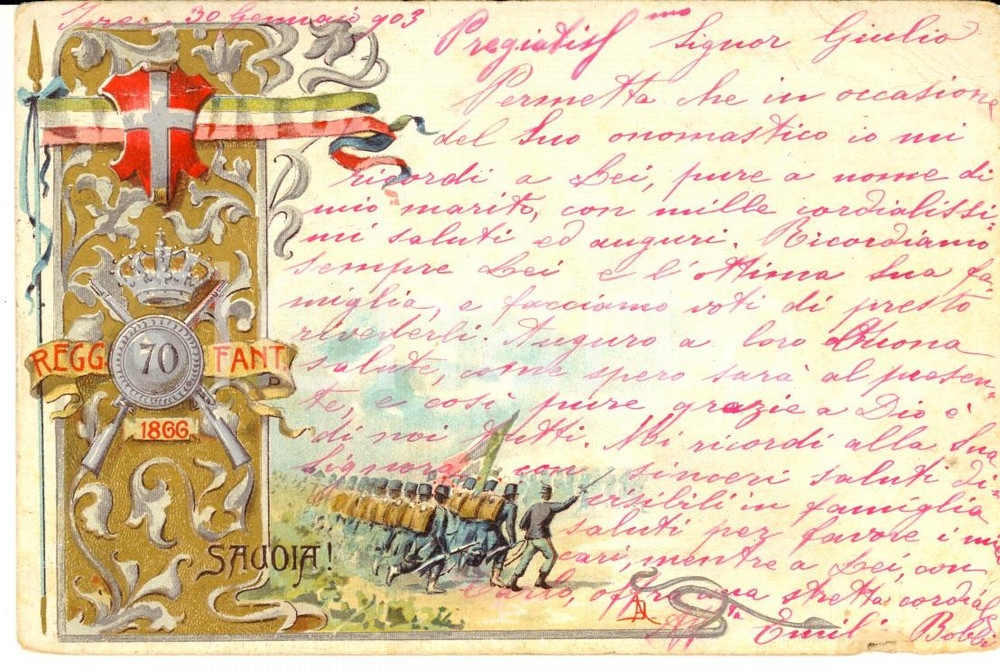 30 Gennaio 903
Pregiatiss.mo Signor Giulio
Permetta che in occasione
del Suo onomastico io mi
ricordi a Lei, pure a nome di
mio marito, con mille cordialissi-
mi saluti ed auguri. Ricordiamo
sempre Lei e l'ottima Sua fa-
miglia, e facciamo voti di presto
rivederli. Auguro a loro buona
salute, come spero sarà al presen-
te, e così pure grazie a Dio è
di noi tutti. Mi ricordi alla Sua
Signora con sinceri saluti di-
visibili in famiglia
saluti per favore i mi
cari, mentre a Lei, con
Carlo, offro una stretta cordial
Aff Emil Bobbi
REGG. 70 FANT.
1866
SAVOIA!